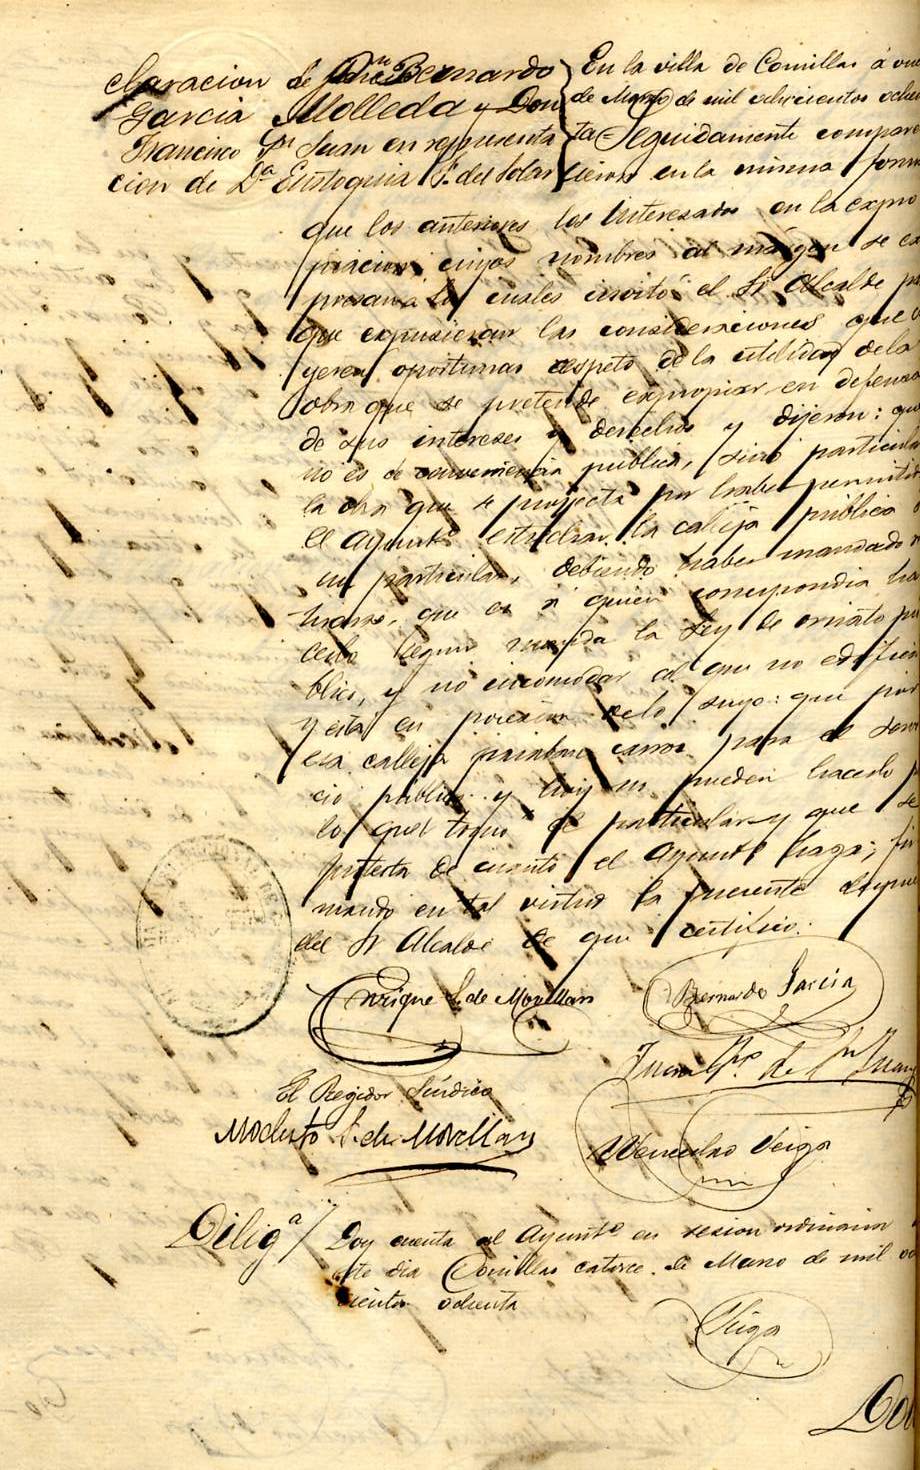 claracion de Dn. Bernardo
Garcia Molleda y Don
Francisco Sn Juan en representa
cion de Da. Eustoquia F. del Solar
En la villa de Comillas á
de Marzo de mil ochocientos ochen
ta = Seguidamente compare
cieron en la misma forma
que los anteriores los interesados en la expro
piacion cuyos nombres al márgen se ex
presan á los cuales invitó el Sr Alcalde pa
que expusieran las consideraciones que
yeren oportunas respeto de la utilidad de la
obra que se pretende expropiar en defensa
de sus intereses y derechos y dijeron: que
no es de conveniencia publica, sino particular
la obra que se proyecta por haber permitido
el Ayunto. estrechar la calleja pública á
un particular, debiendo haber mandado
que es á quien correspondia ha
cerlo segun manda la Ley de ornato pu
blico, y no incomodar al que no edifica
y esta en posesion de lo suyo: que por
esa calleja pasaban carros para el servi
cio publico y hoy no pueden hacerlo p
lo que tomó el particular y que se
protesta de cuanto el Ayunto. haga; fir
mando en tal virtud la presente despues
del Sr Alcalde de que certifico.
Enrique S. de Movellan
Bernardo Garcia
Juan Fco. de Sn Juan
El Regidor Síndico
Modesto S. de Movellan
Wenceslao Veiga
Diliga / Doy cuenta al Ayunto. en sesion ordinaria
este dia Comillas catorce de Marzo de mil oc
cientos ochenta
Veiga